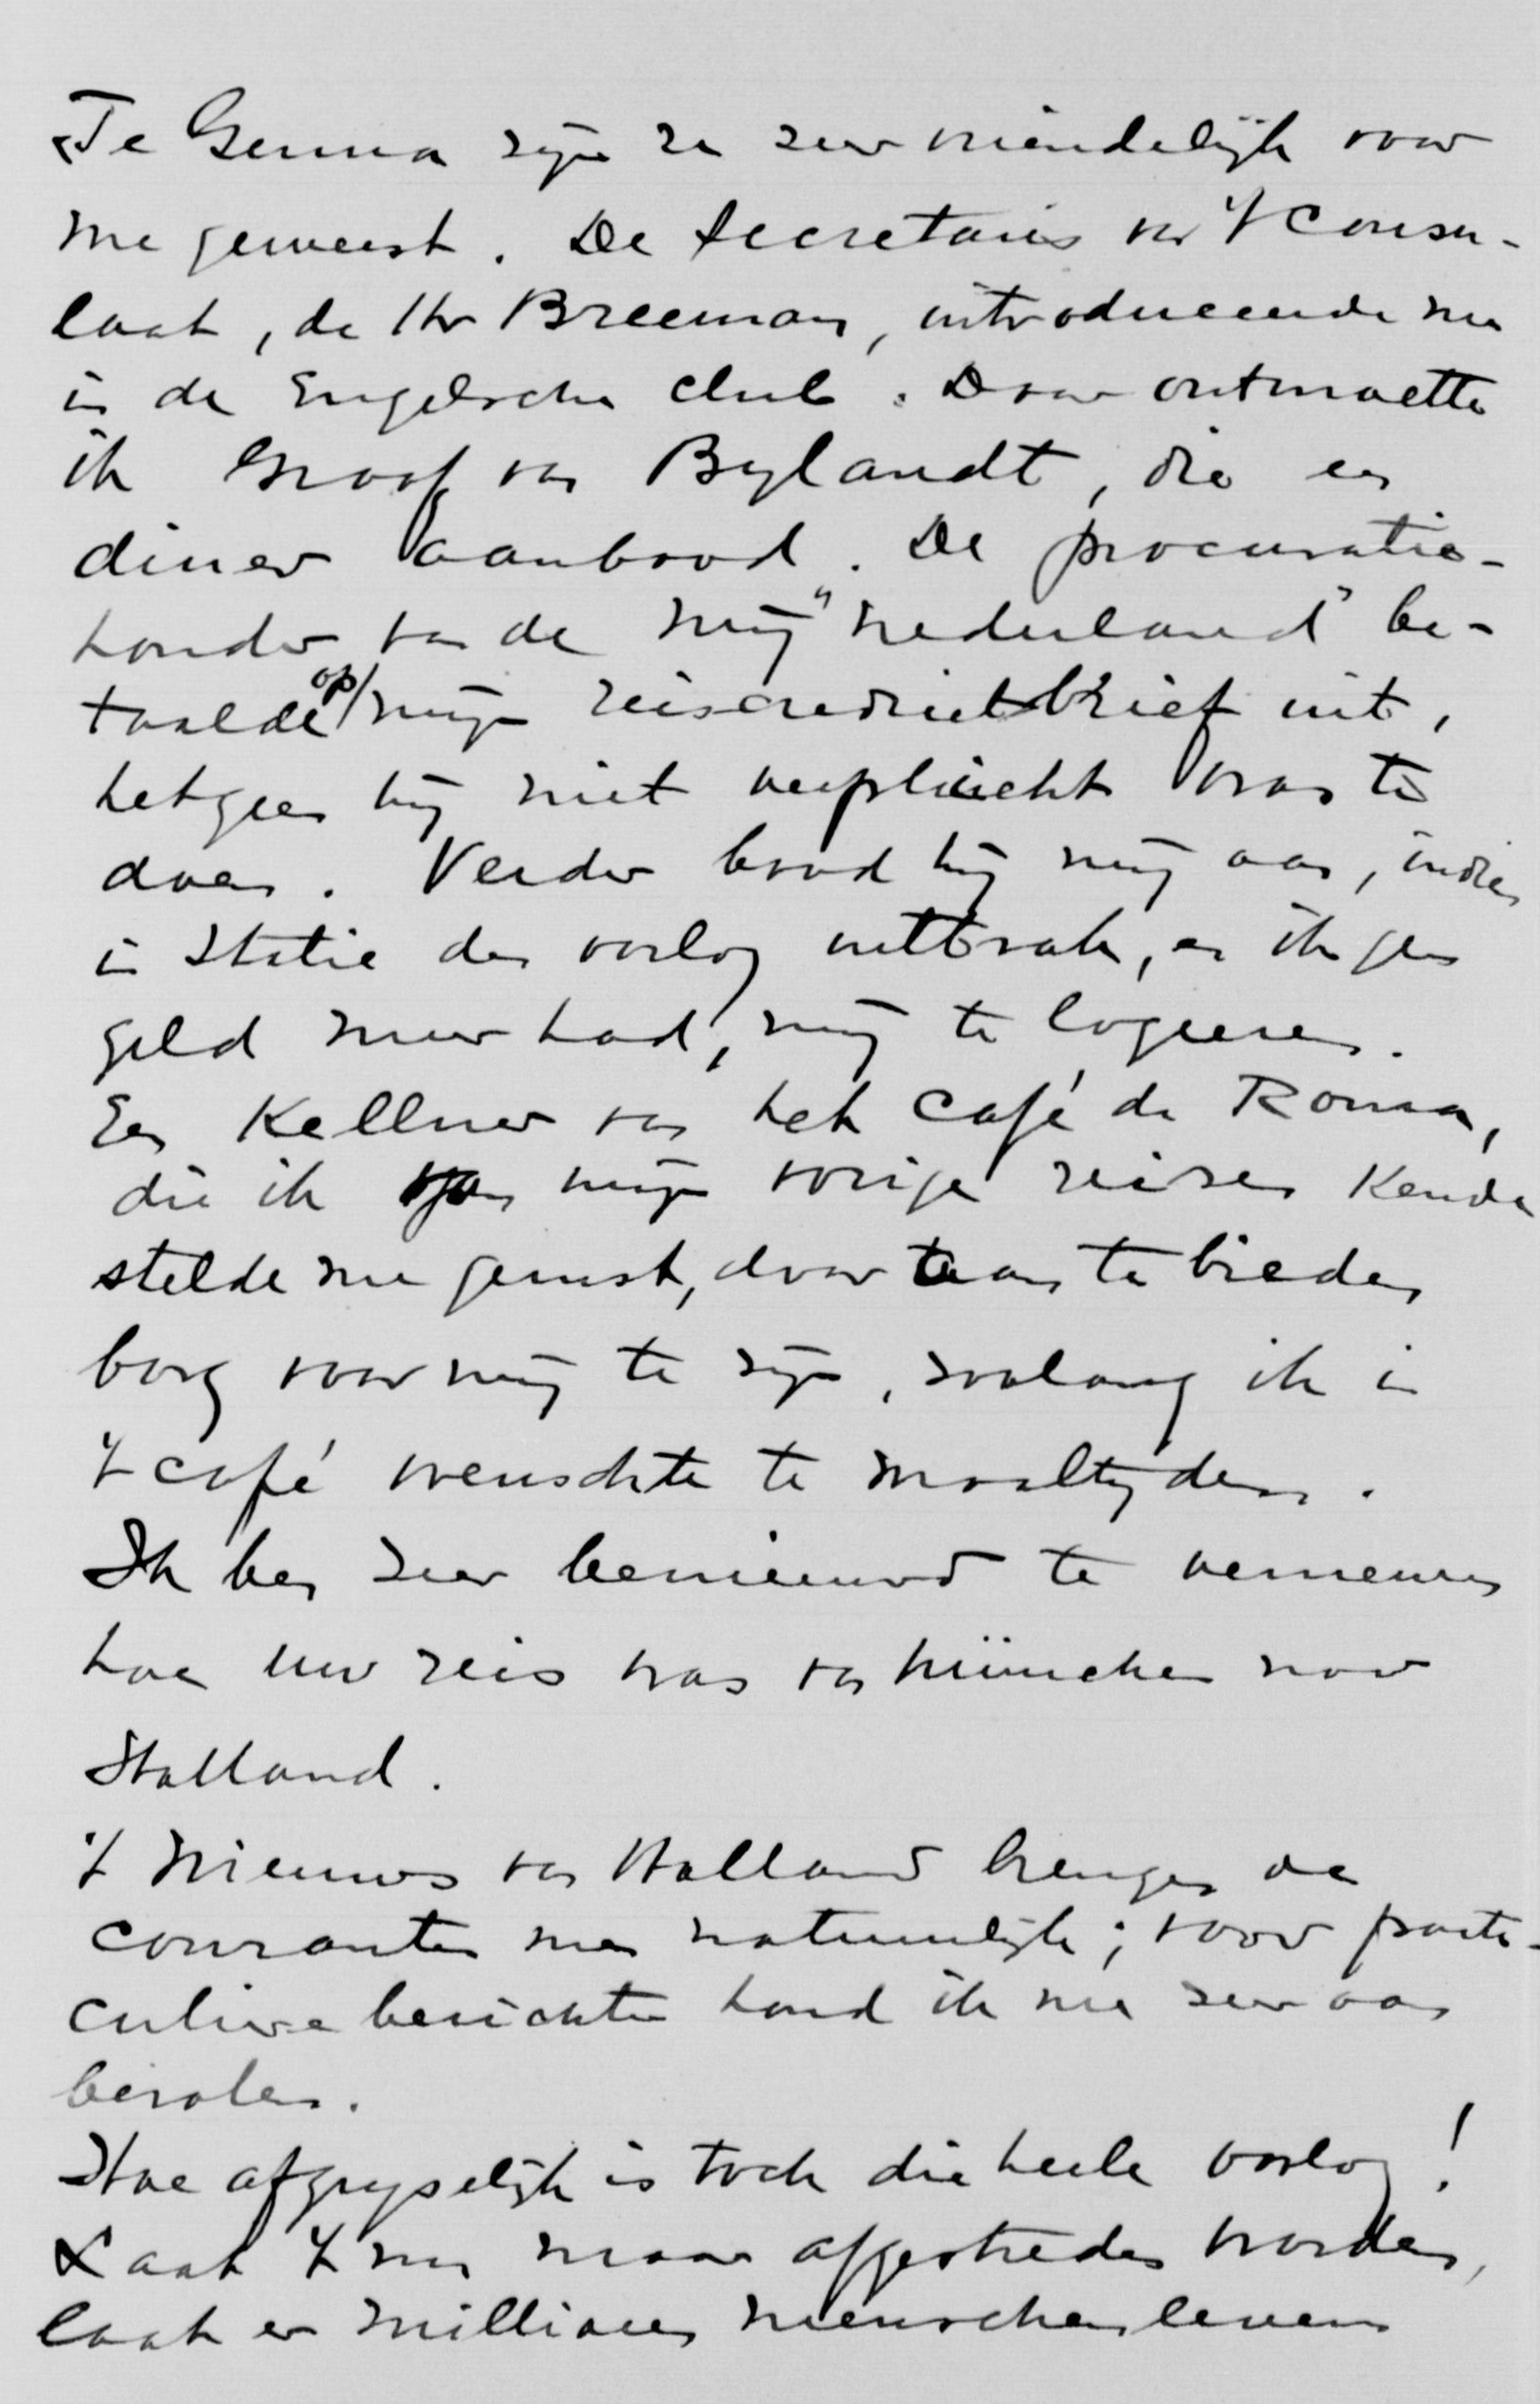 Te Genua zijn ze zeer vriendelijk voor
me geweest. De Secretaris van 't Consu-
laat, de Hr Breeman, introduceerde me
in de Engelsche club. Daar ontmoette
ik Graaf van Bylandt, die een
diner aanbood. De procuratie-
houder van de Mij "Nederland" be-
taalde op mijn reiscredietbrief uit,
hetgeen hij niet verplicht was te
doen. Verder bood hij mij aan, indien
in Italië de oorlog uitbrak, en ik geen
geld meer had, mij te logeeren.
Een Kellner van het Café de Roma,
die ik van mijn vorige reizen kende
stelde me gerust, door aan te bieden
borg voor mij te zijn, zoolang ik in
't café wenschte te maaltijden.
Ik ben zeer benieuwd te vernemen
hoe uw reis was van München naar
Holland.
't Nieuws van Holland brengen de
couranten me natuurlijk; voor parti-
culiere berichten houd ik me zeer aan
bevolen.
Hoe afgrijselijk is toch die heele oorlog!
Laat 't nu maar afgestreden worden,
laat er millioenen menschenlevens